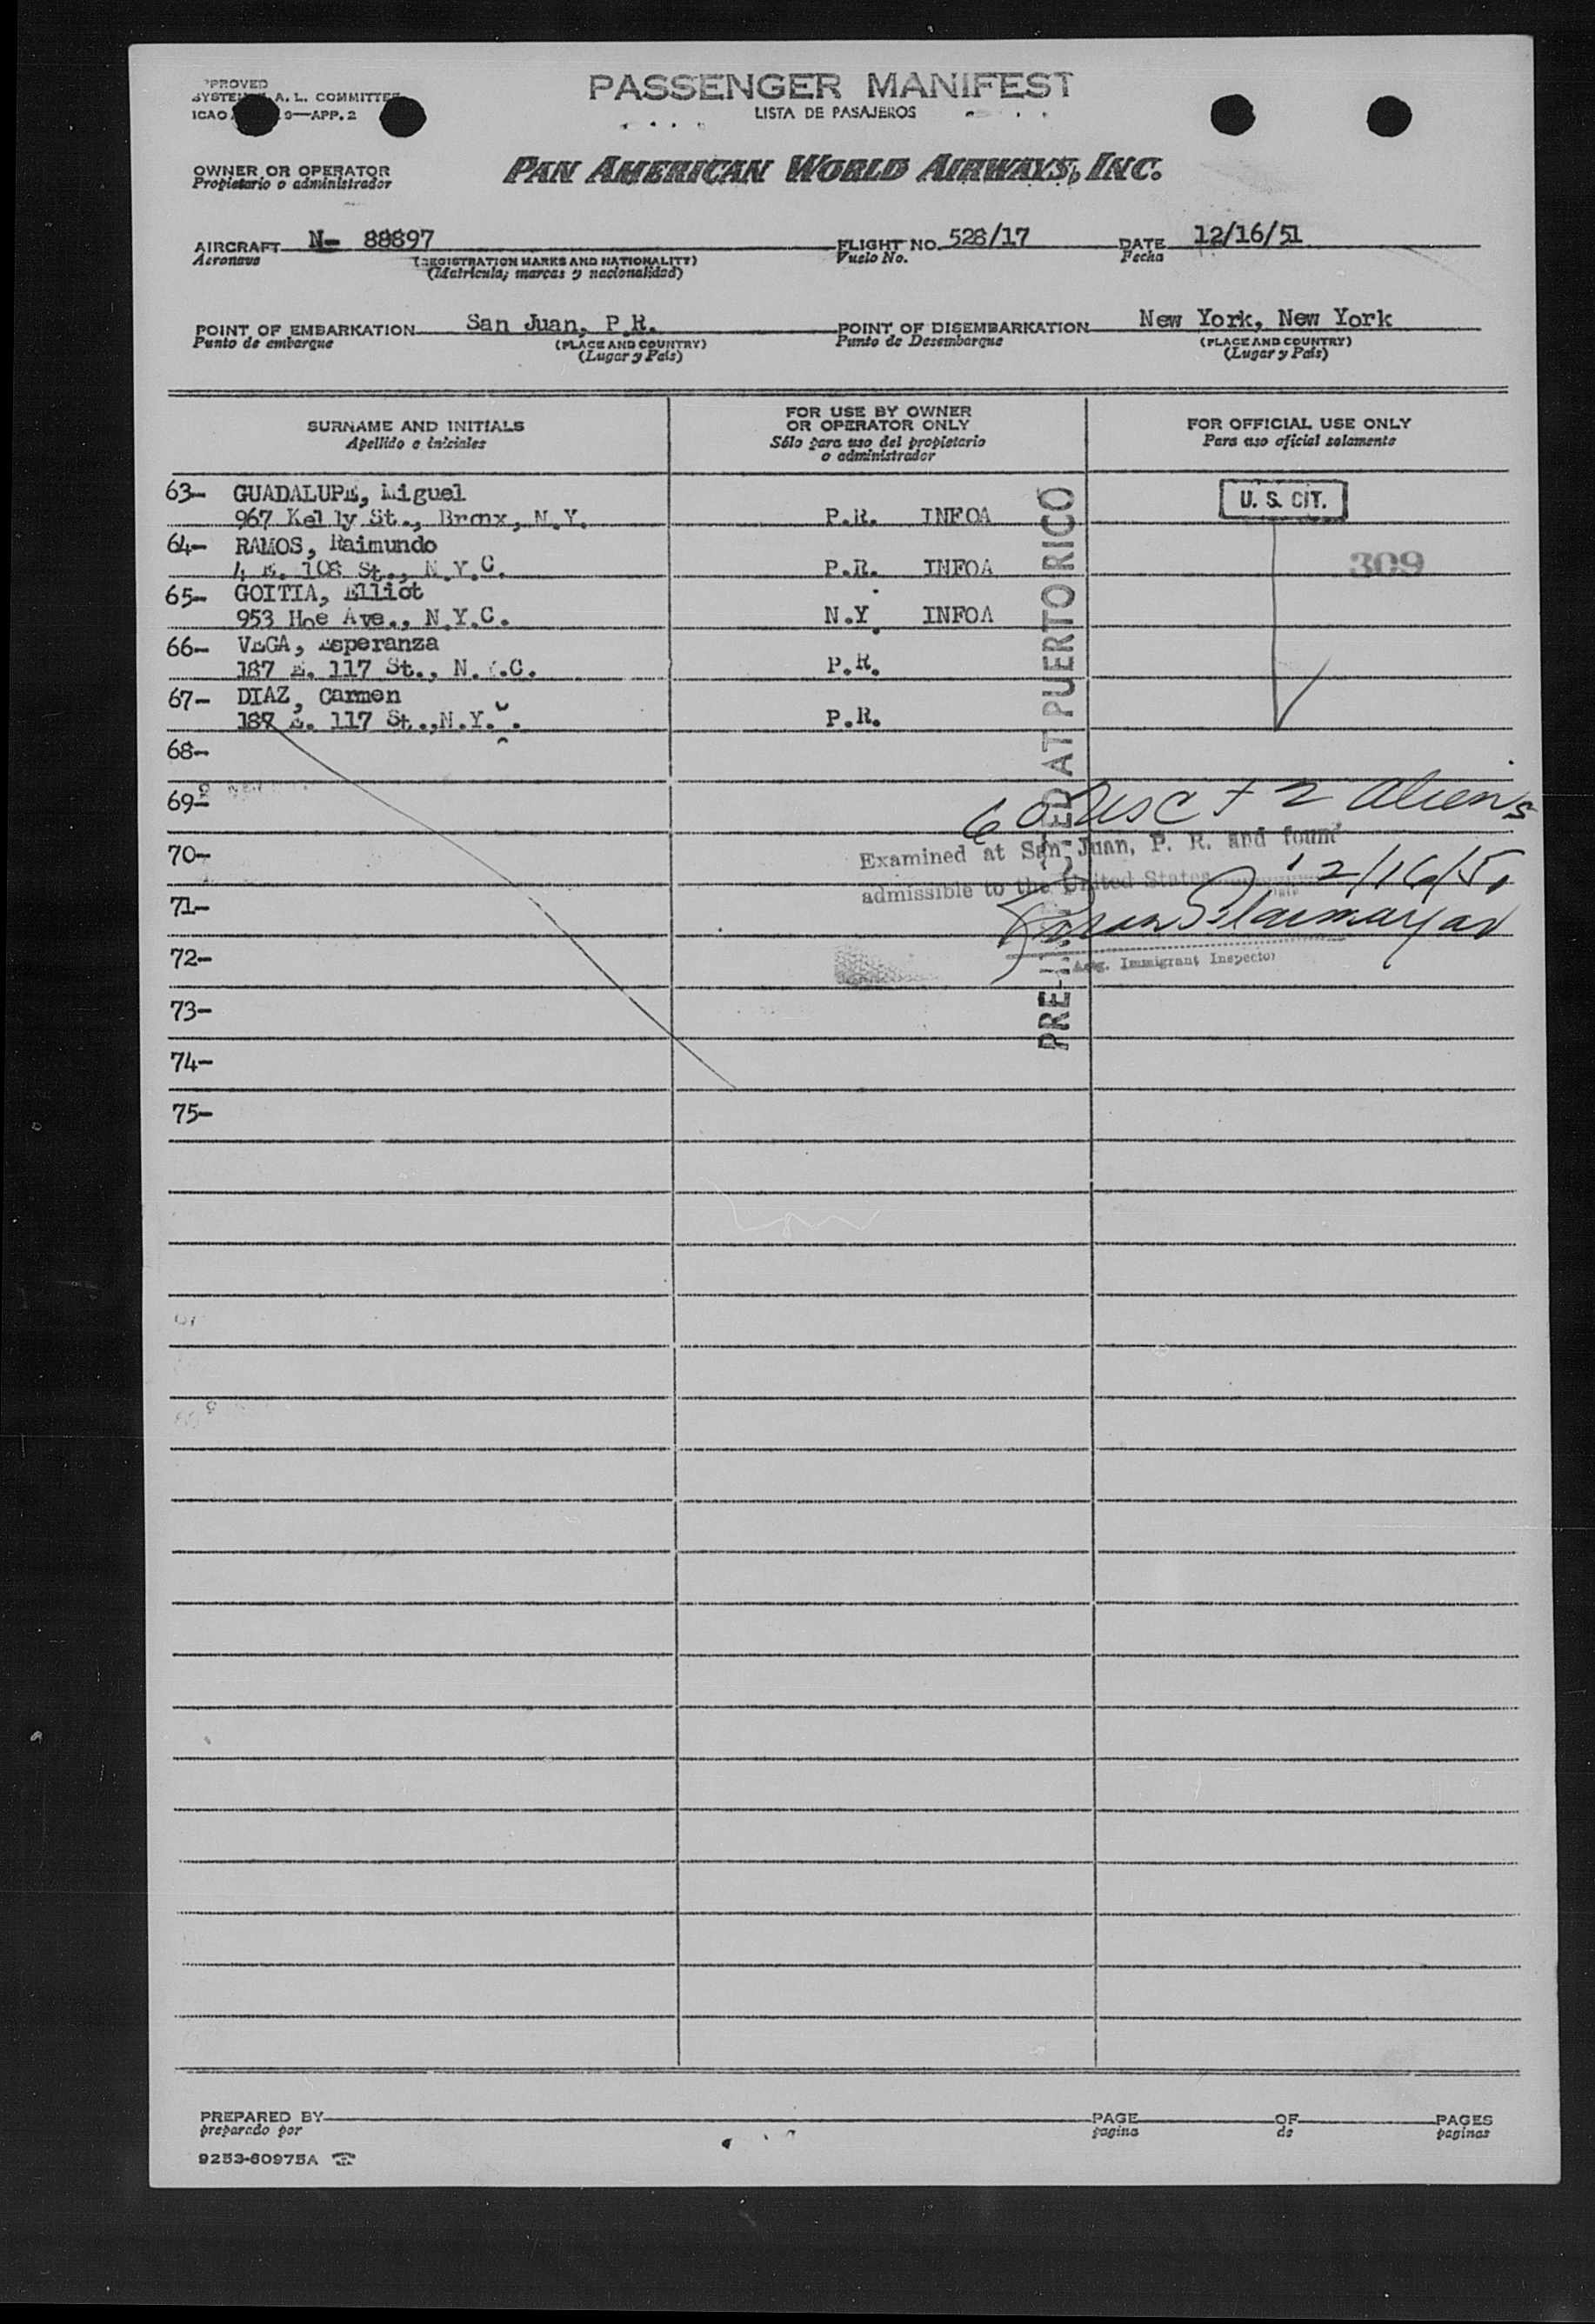 PASSENGER MANIFEST
LISTA DE PASAJEROS
PROVED
A. L. COMMITTEE
ICAO 9—APP. 2
OWNER OR OPERATOR
Propietario o administrador
PAN AMERICAN WORLD AIRWAYS, INC.
AIRCRAFT N- 88897 FLIGHT NO. 528/17 DATE 12/16/51
Aeronave (REGISTRATION MARKS AND NATIONALITY) Vuelo No. Fecha
(Matricula, marcas y nacionalidad)
POINT OF EMBARKATION San Juan, P.R. POINT OF DISEMBARKATION New York, New York
Punto de embarque (PLACE AND COUNTRY) Punto de Desembarque (PLACE AND COUNTRY)
(Lugar y País) (Lugar y País)
SURNAME AND INITIALS FOR USE BY OWNER OR OPERATOR ONLY FOR OFFICIAL USE ONLY
Apellido e iniciales Sólo para uso del propietario o administrador Para uso oficial solamente
63- GUADALUPE, Miguel U. S. CIT.
967 Kelly St., Bronx, N.Y. P.R. INFOA
64- RAMOS, Raimundo 309
4 E. 108 St., N.Y.C. P.R. INFOA
65- GOITIA, Elliot
953 Hoe Ave., N.Y.C. N.Y. INFOA
66- VEGA, Esperanza
187 E. 117 St., N. .C. P.R.
67- DIAZ, Carmen
187 E. 117 St.,N.Y. . P.R.
68-
69-
60 USC + 2 Aliens
70-
Examined at San Juan, P. R. and found
admissible to the United States 12/16/51
71-
72-
Actg. Immigrant Inspector
73-
74-
75-
PRE-INSPECTED AT PUERTO RICO
PREPARED BY PAGE OF PAGES
preparado por pagina de paginas
9253-60975A